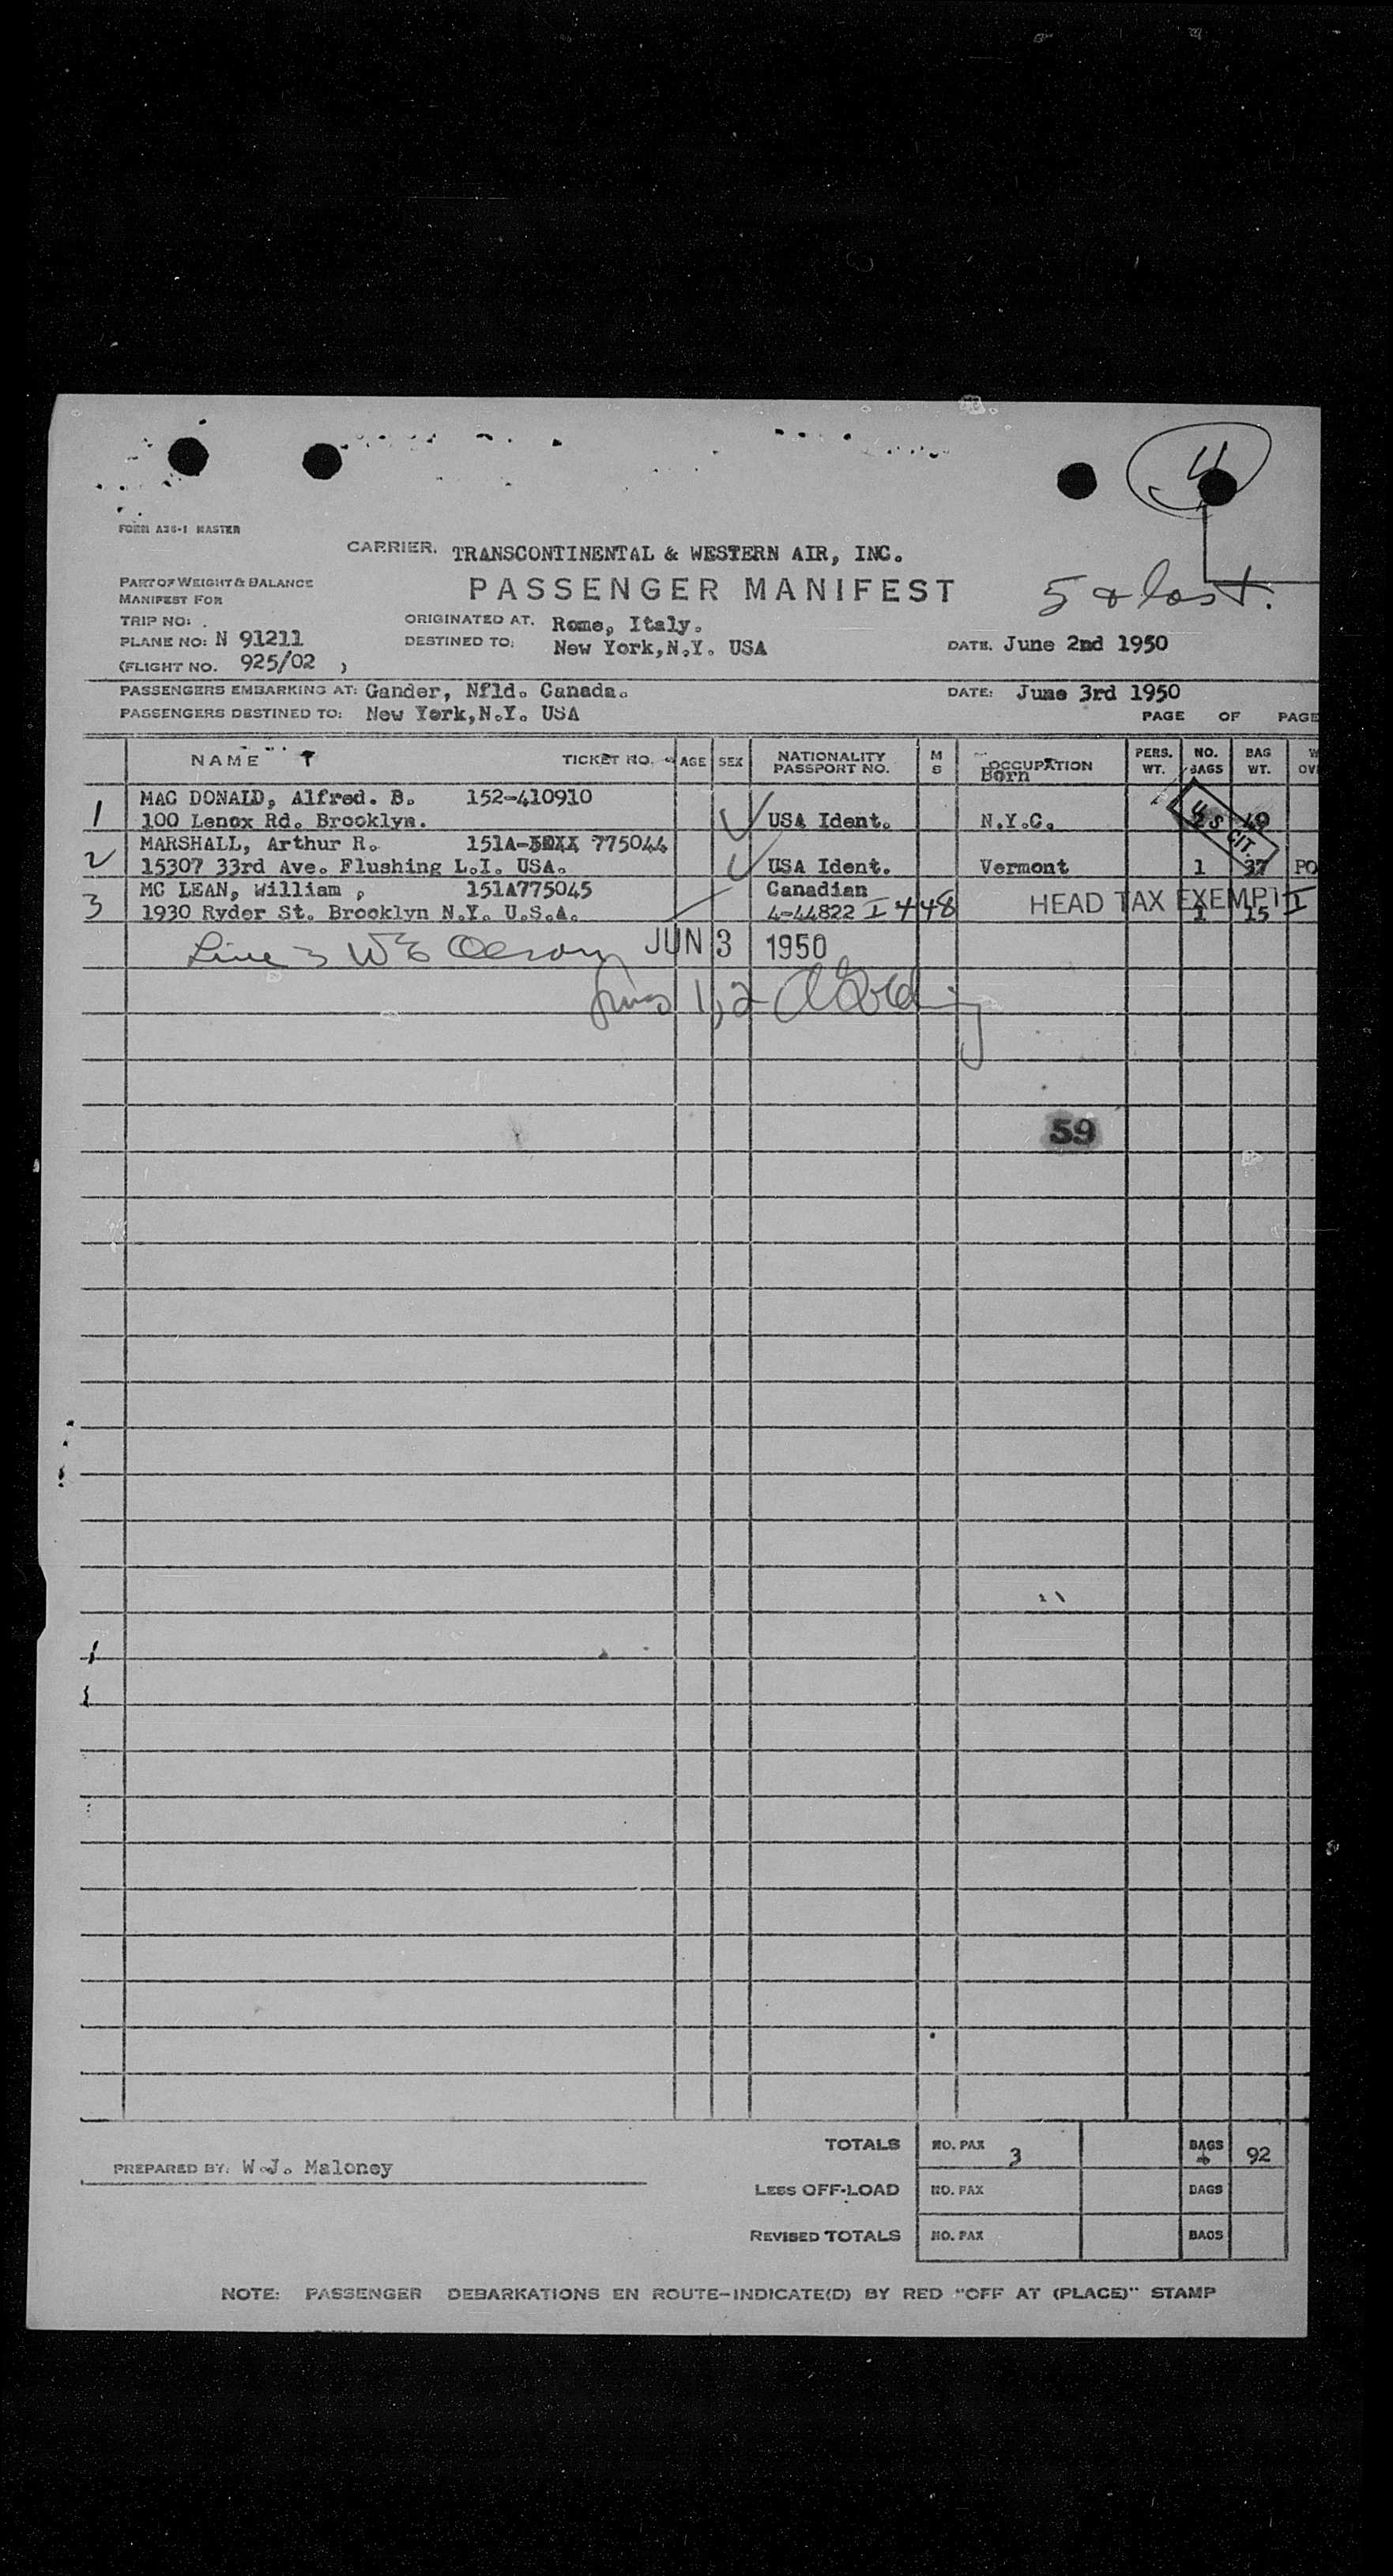 4
FORM A36-1 MASTER
CARRIER. TRANSCONTINENTAL & WESTERN AIR, INC.
PART OF WEIGHT & BALANCE
MANIFEST FOR
PASSENGER MANIFEST
5 & last.
TRIP NO: .
ORIGINATED AT. Rome, Italy.
PLANE NO: N 91211
DESTINED TO: New York,N.Y. USA
DATE. June 2nd 1950
(FLIGHT NO. 925/02 )
PASSENGERS EMBARKING AT: Gander, Nfld. Canada.
DATE: June 3rd 1950
PASSENGERS DESTINED TO: New York,N.Y. USA
PAGE OF PAGE
NAME TICKET NO. AGE SEX NATIONALITY PASSPORT NO. M S OCCUPATION Born PERS. WT. NO. BAGS BAG WT.
1 MAC DONALD, Alfred. B. 152-410910
100 Lenox Rd. Brooklyn. USA Ident. N.Y.C. 40
U S CIT.
2 MARSHALL, Arthur R. 151A- 775044
15307 33rd Ave. Flushing L.I. USA. USA Ident. Vermont 1 37 PO
3 MC LEAN, William , 151A775045 Canadian
1930 Ryder St. Brooklyn N.Y. U.S.A. 4-44822 I 448 HEAD TAX EXEMPT I 1 15
Line 3 JUN 3 1950
Lines 1,2
59
TOTALS NO. PAX 3 BAGS 92
PREPARED BY: W.J. Maloney
LESS OFF-LOAD NO. PAX BAGS
REVISED TOTALS NO. PAX BAGS
NOTE: PASSENGER DEBARKATIONS EN ROUTE-INDICATE(D) BY RED "OFF AT (PLACE)" STAMP